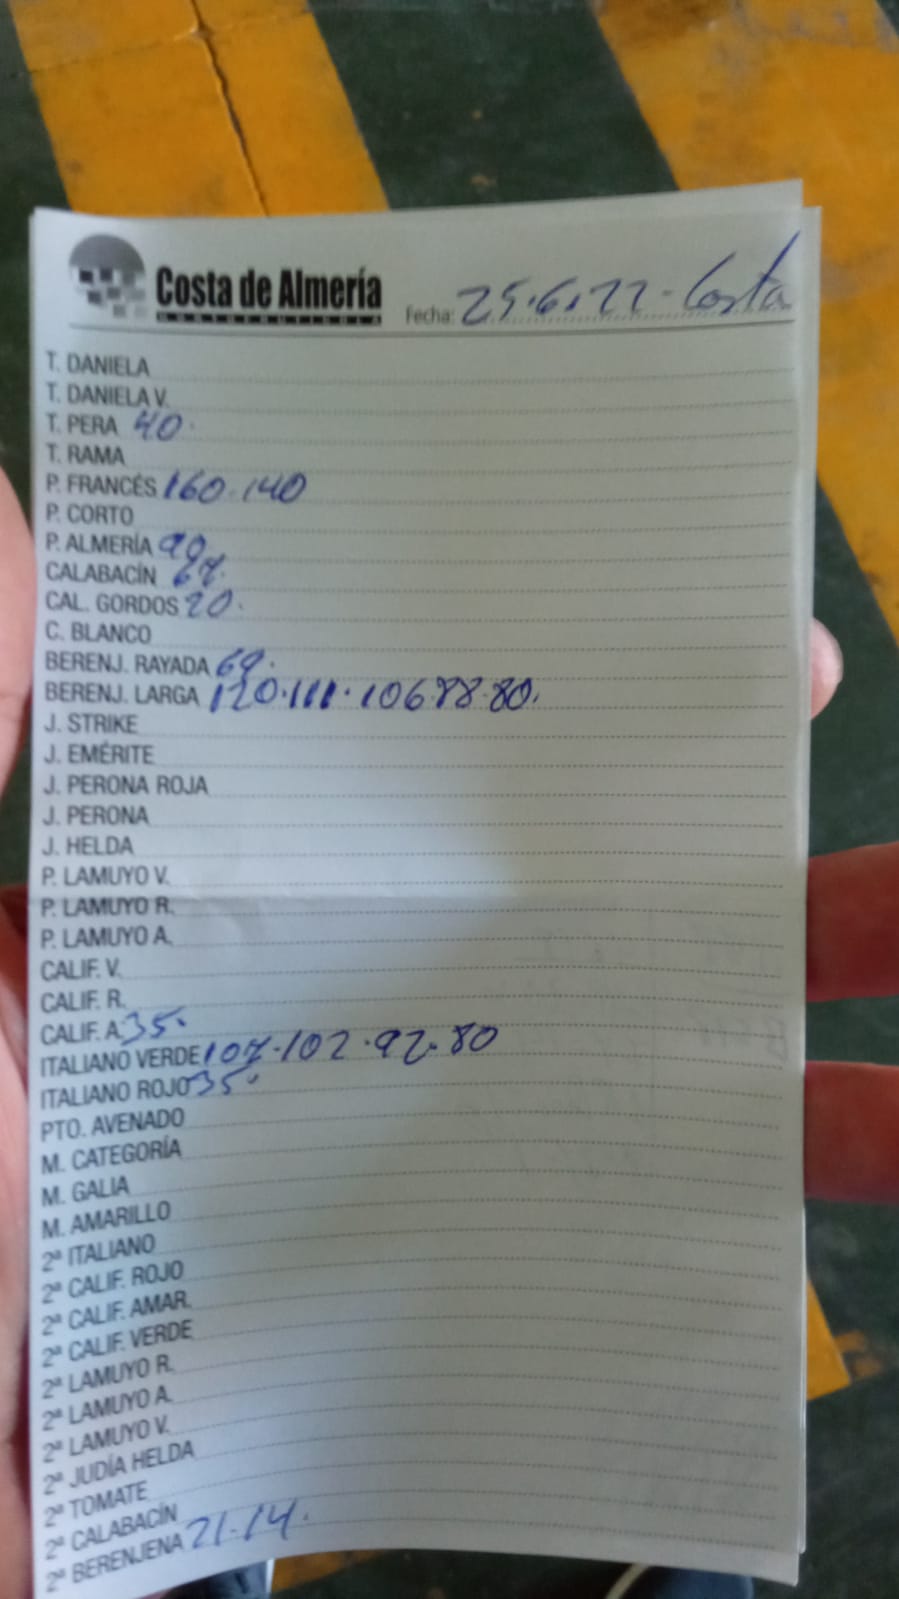 Costa de Almería
HORTOFRUTÍCOLA
Fecha: 25.6.22 - Costa
T. DANIELA
T. DANIELA V.
T. PERA 40.
T. RAMA
P. FRANCÉS 160.140
P. CORTO
P. ALMERÍA 90.
CALABACÍN 67.
CAL. GORDOS 20.
C. BLANCO
BERENJ. RAYADA 69.
BERENJ. LARGA 120.111.106.88.80.
J. STRIKE
J. EMÉRITE
J. PERONA ROJA
J. PERONA
J. HELDA
P. LAMUYO V.
P. LAMUYO R.
P. LAMUYO A.
CALIF. V.
CALIF. R.
CALIF. A. 35.
ITALIANO VERDE 107.102.92.80
ITALIANO ROJO 35.
PTO. AVENADO
M. CATEGORÍA
M. GALIA
M. AMARILLO
2ª ITALIANO
2ª CALIF. ROJO
2ª CALIF. AMAR.
2ª CALIF. VERDE
2ª LAMUYO R.
2ª LAMUYO A.
2ª LAMUYO V.
2ª JUDÍA HELDA
2ª TOMATE
2ª CALABACÍN
2ª BERENJENA 21.14.